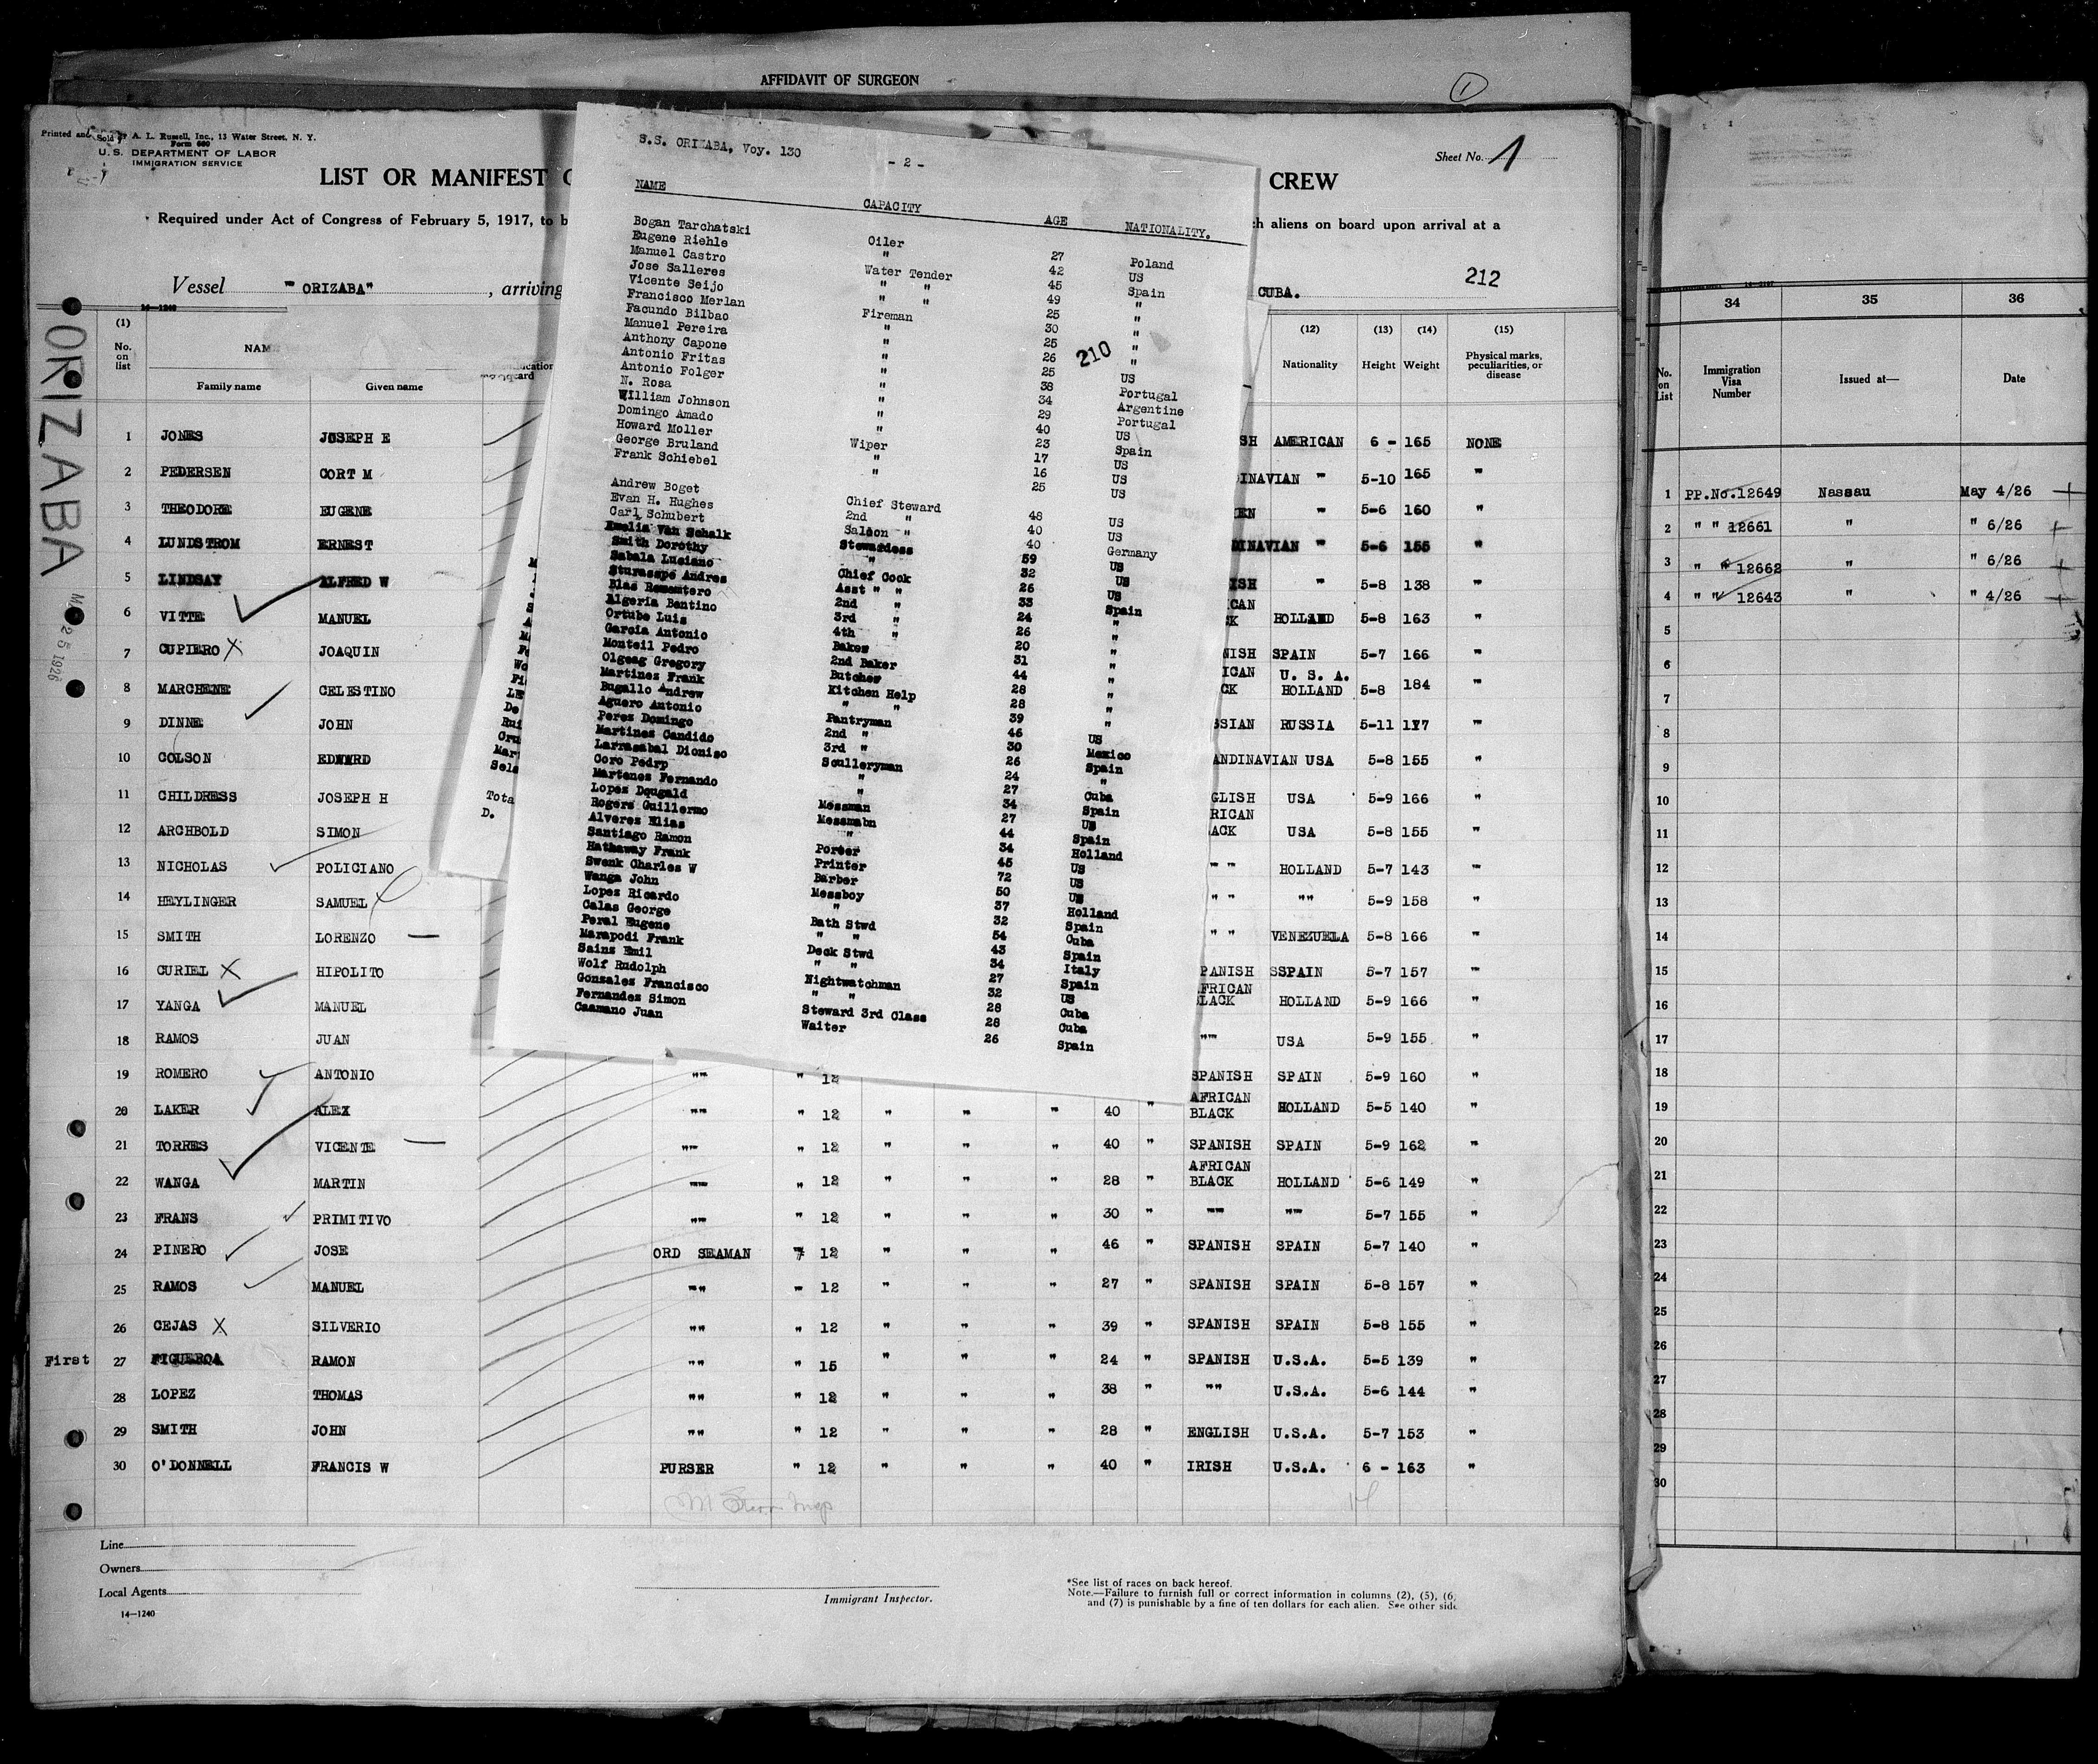 AFFIDAVIT OF SURGEON
1
Printed and Sold by A. L. Russell, Inc., 13 Water Street, N. Y.
Form 680
U. S. DEPARTMENT OF LABOR
IMMIGRATION SERVICE
Sheet No. 1
LIST OR MANIFEST CREW
Required under Act of Congress of February 5, 1917, to b ch aliens on board upon arrival at a
Vessel " ORIZABA" , arriving CUBA. 212
14-1240
ORIZABA
25 1926
(1) No. on list
NAM
Family name Given name
(12) Nationality (13) Height (14) Weight (15) Physical marks, peculiarities, or disease
1 JONES JOSEPH E SH AMERICAN 6 - 165 NONE
2 PEDERSEN CORT M INAVIAN " 5-10 165 "
3 THEODORE EUGENE EN " 5-6 160 "
4 LUNDSTROM ERNEST DINAVIAN " 5-6 155 "
5 LINDSAY ALFRED W ISH " 5-8 138 "
6 VITTE MANUEL CAN CK HOLLAND 5-8 163 "
7 CUPIERO X JOAQUIN NISH SPAIN 5-7 166 "
8 MARCHENE CELESTINO ICAN CK U. S. A. HOLLAND 5-8 184 "
9 DINNE JOHN SSIAN RUSSIA 5-11 177 "
10 COLSON EDWARD ANDINAVIAN USA 5-8 155 "
11 CHILDRESS JOSEPH H GLISH USA 5-9 166 "
12 ARCHBOLD SIMON RICAN ACK USA 5-8 155 "
13 NICHOLAS POLICIANO " " HOLLAND 5-7 143 "
14 HEYLINGER SAMUEL " " "" 5-9 158 "
15 SMITH LORENZO " " VENEZUELA 5-8 166 "
16 CURIEL X HIPOLITO PANISH SSPAIN 5-7 157 "
17 YANGA MANUEL FRICAN LACK HOLLAND 5-9 166 "
18 RAMOS JUAN "" USA 5-9 155 "
19 ROMERO ANTONIO "" " 12 SPANISH SPAIN 5-9 160 "
20 LAKER ALEX "" " 12 " " " 40 " AFRICAN BLACK HOLLAND 5-5 140 "
21 TORRES VICENTE "" " 12 " " " 40 " SPANISH SPAIN 5-9 162 "
22 WANGA MARTIN "" " 12 " " " 28 " AFRICAN BLACK HOLLAND 5-6 149 "
23 FRANS PRIMITIVO "" " 12 " " " 30 " "" "" 5-7 155 "
24 PINERO JOSE ORD SEAMAN " 12 " " " 46 " SPANISH SPAIN 5-7 140 "
25 RAMOS MANUEL "" " 12 " " " 27 " SPANISH SPAIN 5-8 157 "
26 CEJAS X SILVERIO "" " 12 " " " 39 " SPANISH SPAIN 5-8 155 "
First 27 FIGUEROA RAMON "" " 15 " " " 24 " SPANISH U.S.A. 5-5 139 "
28 LOPEZ THOMAS "" " 12 " " " 38 " "" U.S.A. 5-6 144 "
29 SMITH JOHN "" " 12 " " " 28 " ENGLISH U.S.A. 5-7 153 "
30 O'DONNELL FRANCIS W PURSER " 12 " " " 40 " IRISH U.S.A. 6 - 163 "
Line
Owners
Local Agents
14-1240
Immigrant Inspector.
*See list of races on back hereof.
Note.—Failure to furnish full or correct information in columns (2), (5), (6,
and (7) is punishable by a fine of ten dollars for each alien. See other side
S.S. ORIZABA, Voy. 130
- 2 -
NAME CAPACITY AGE NATIONALITY.
210
Bogan Tarchatski Oiler 27 Poland
Eugene Riehle " 42 US
Manuel Castro Water Tender 45 Spain
Jose Salleres " " 49 "
Vicente Seijo " " 25 "
Francisco Merlan Fireman 30 "
Facundo Bilbao " 25 "
Manuel Pereira " 26 "
Anthony Capone " 25 US
Antonio Fritas " 38 Portugal
Antonio Folger " 34 Argentine
N. Rosa " 29 Portugal
William Johnson " 40 US
Domingo Amado " 23 Spain
Howard Moller Wiper 17 US
George Bruland " 16 US
Frank Schiebel " 25 US
Andrew Boget Chief Steward 48 US
Evan H. Hughes 2nd " 40 US
Carl Schubert Saloon " 40 Germany
Emelia Van Schalk Stewardess 59 US
Smith Dorothy " 32 US
Sabala Luciano Chief Cook 26 US
Sturasspe Andres Asst " " 33 Spain
Blas Rementero 2nd " 24 "
Algeria Bentino 3rd " 26 "
Ortube Luis 4th " 20 "
Garcia Antonio Baker 31 "
Monteil Pedro 2nd Baker 44 "
Olgeag Gregory Butcher 28 "
Martinez Frank Kitchen Help 28 "
Bugallo Andrew " " 39 "
Aguero Antonio Pantryman 46 US
Perez Domingo 2nd " 30 Mexico
Martinez Candido 3rd " 26 Spain
Larrasabal Dioniso Sculleryman 24 "
Coro Pedrp " 27 Cuba
Martenes Fernando " 34 Spain
Lopez Dougald Messman 27 US
Rogers Guillermo Messmabn 44 Spain
Alverez Elias " 34 Holland
Santiago Ramon Porter 45 US
Hathaway Frank Printer 72 US
Swenk Charles W Barber 50 US
Wanga John Messboy 37 Holland
Lopez Ricardo " 32 Spain
Calas George Bath Stwd 54 Cuba
Peral Eugene " " 43 Spain
Marapodi Frank Deck Stwd 34 Italy
Sainz Emil " " 27 Spain
Wolf Rudolph Nightwatchman 32 US
Gonzalez Francisco " " 28 Cuba
Fernandez Simon Steward 3rd Class 28 Cuba
Caamano Juan Waiter 26 Spain
De
Rui
Cru
Mar
Sela
Tota
D.
34 35 36
No. on List Immigration Visa Number Issued at— Date
1 PP.No.12649 Nassau May 4/26
2 " " 12661 " " 6/26
3 " " 12662 " " 6/26
4 " " 12643 " " 4/26
5
6
7
8
9
10
11
12
13
14
15
16
17
18
19
20
21
22
23
24
25
26
27
28
29
30